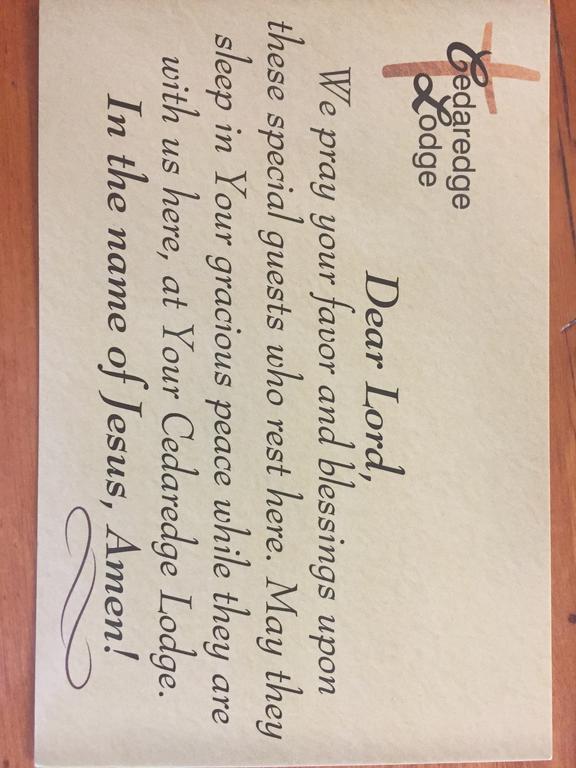 Cedaredge
Lodge
Dear Lord,
We pray your favor and blessings upon
these special guests who rest here. May they
sleep in Your gracious peace while they are
with us here, at Your Cedaredge Lodge.
In the name of Jesus, Amen!